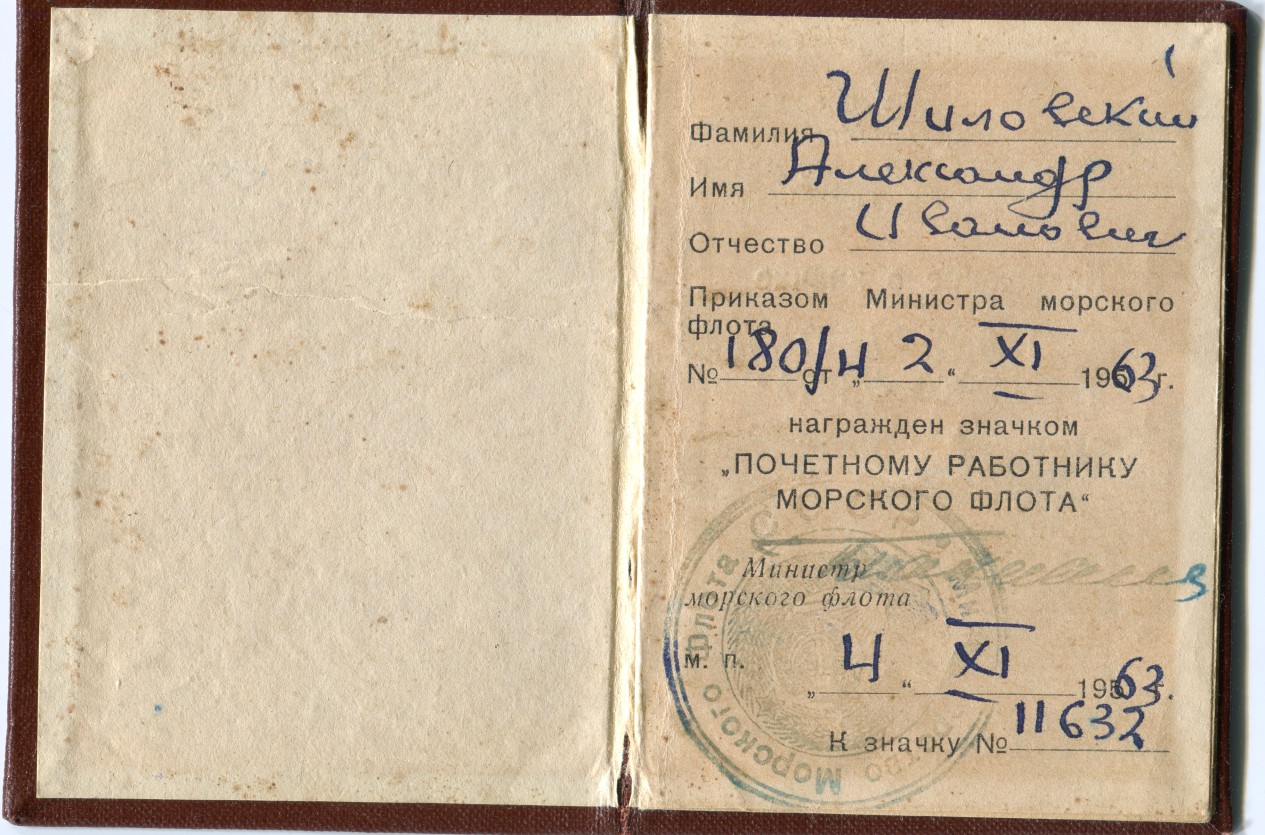 Фамилия Шиловский
Имя Александр
Отчество Иванович
Приказом Министра морского
флота
№ 180/Н от „ 2 “ XI 1963 г.
награжден значком
„ПОЧЕТНОМУ РАБОТНИКУ
МОРСКОГО ФЛОТА“
Министр
морского флота
м. п.
„ 4 “ XI 1963 г.
К значку № 11632
Морского Флота
СССР